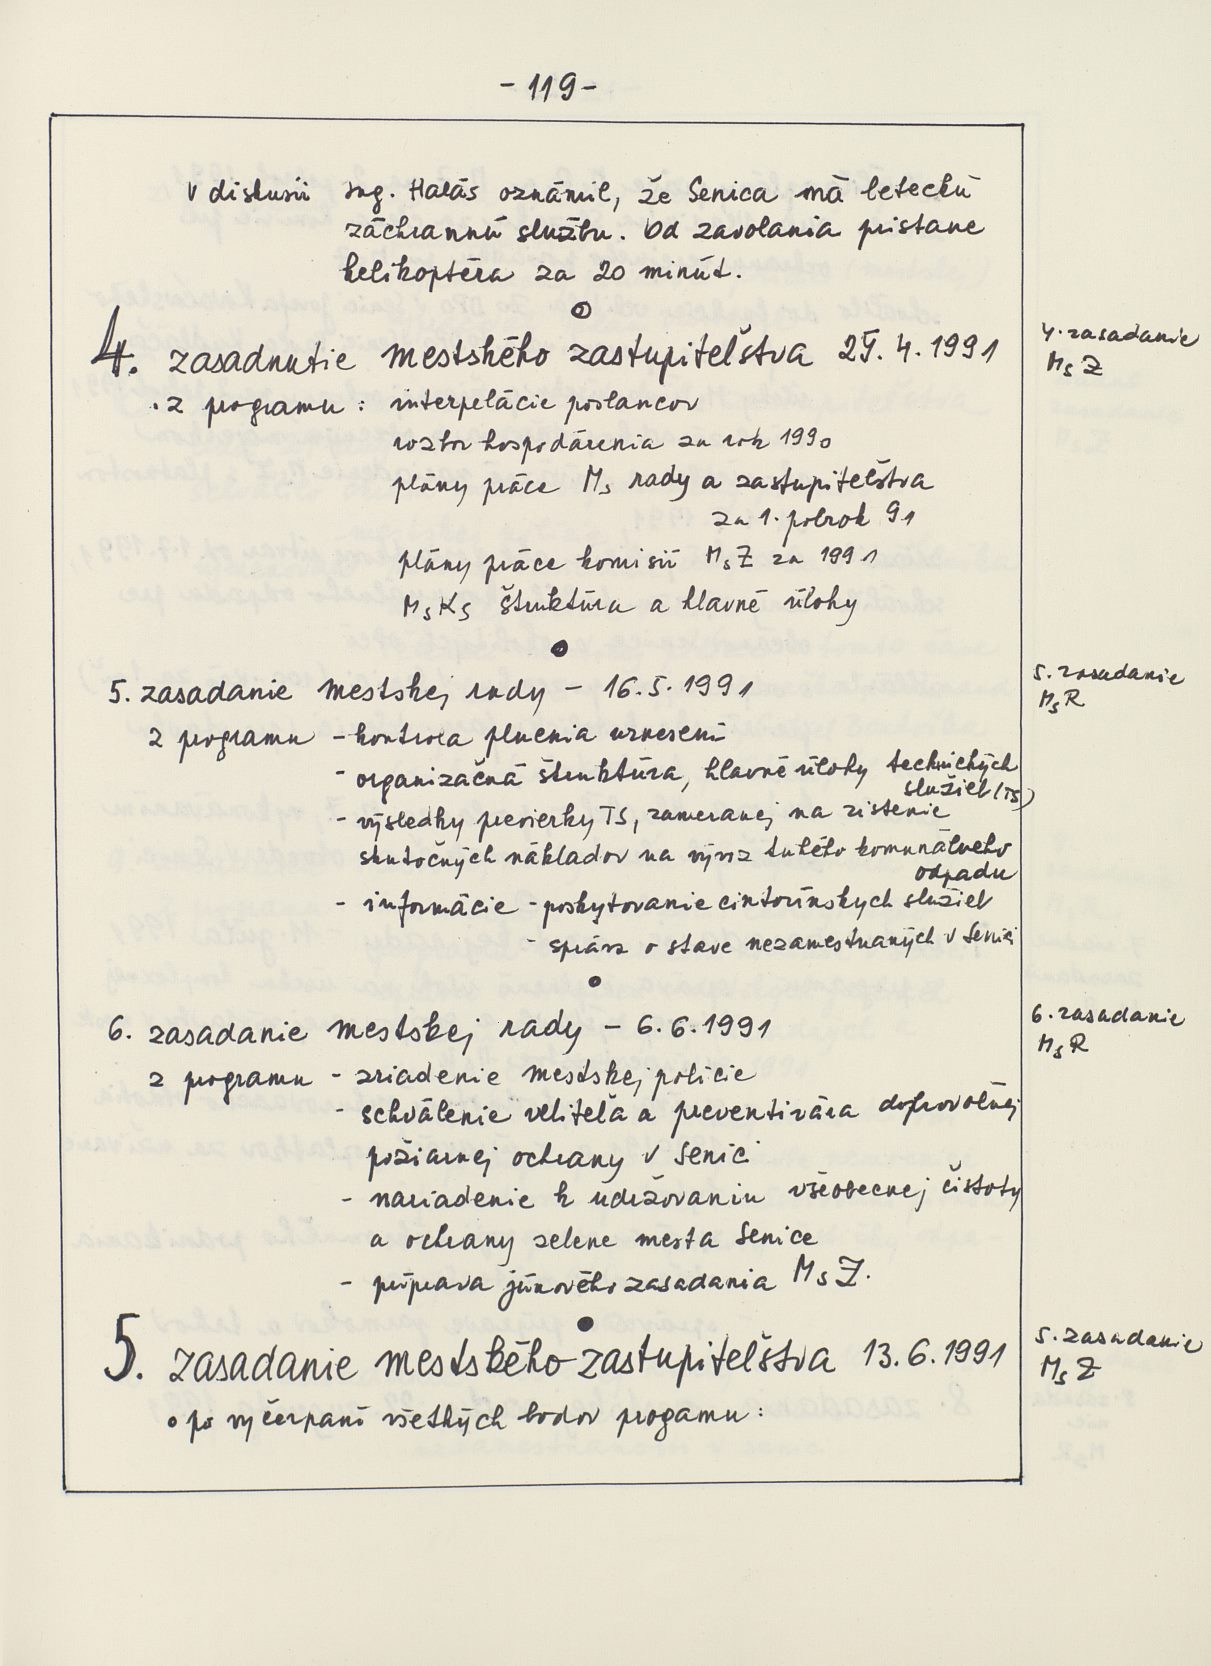 - 119 -
v diskusii ing. Halás oznámil, že Senica má leteckú
záchrannú službu. Od zavolania pristane
helikoptéra za 20 minút.
4. zasadnutie mestského zastupiteľstva 25. 4. 1991
4. zasadanie
MsZ
. z programu : interpelácie poslancov
rozbor hospodárenia za rok 1990
plány práce Ms rady a zastupiteľstva
za 1. polrok 91
plány práce komisií MsZ za 1991
MsKs štruktúra a hlavné úlohy
5. zasadanie mestskej rady - 16. 5. 1991
5. zasadanie
MsR
z programu - kontrola plnenia uznesení
- organizačná štruktúra, hlavné úlohy technických
služieb (TS)
- výsledky previerky TS, zameranej na zistenie
skutočných nákladov na vývoz tuhého komunálneho
odpadu
- informácie - poskytovanie cintorínskych služieb
- správa o stave nezamestnaných v Senici
6. zasadanie mestskej rady - 6. 6. 1991
6. zasadanie
MsR
z programu - zriadenie mestskej polície
- schválenie veliteľa a preventivára dobrovoľnej
požiarnej ochrany v Senici
- nariadenie k udržovaniu všeobecnej čistoty
a ochrany zelene mesta Senice
- príprava júnového zasadania MsZ.
5. zasadanie mestského zastupiteľstva 13. 6. 1991
5. zasadanie
MsZ
• po vyčerpaní všetkých bodov progamu :